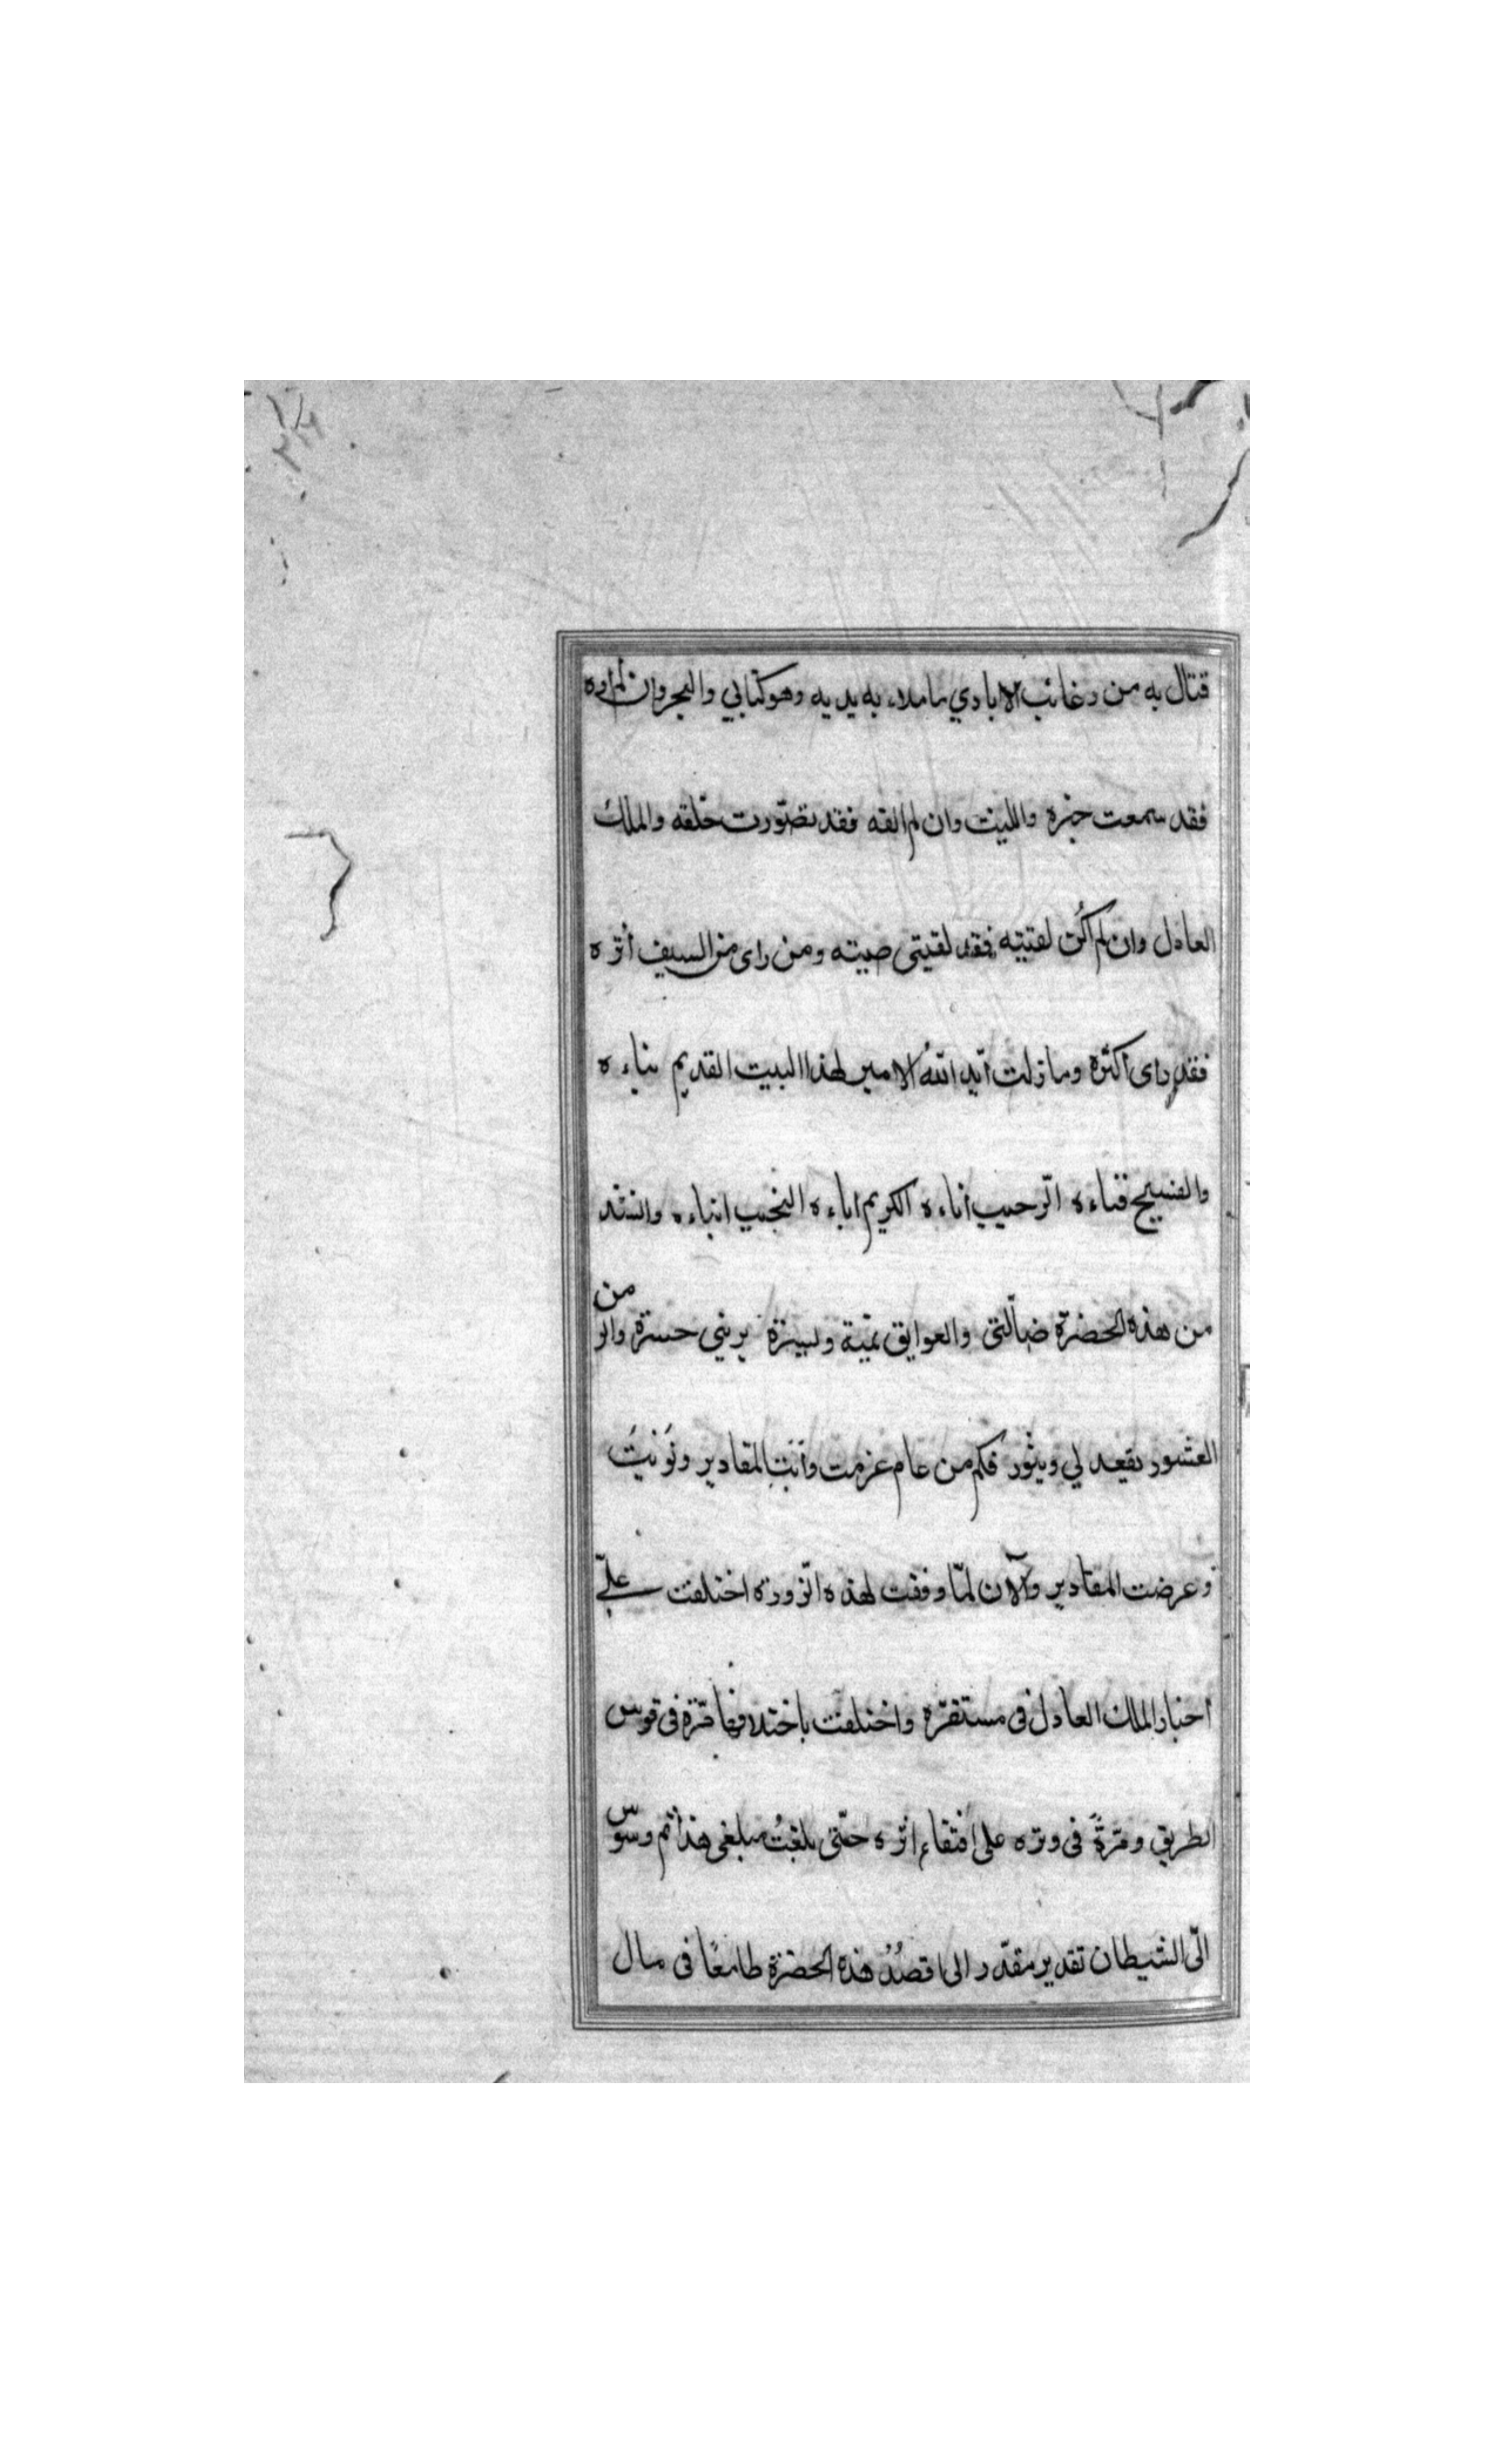 قتال به من رغائب الايادي ما ملاء به يديه وهو كتابي والبحر وان لم اره
فقد سمعت خبره والليث وان لم القه فقد تصوّرت خلقه والملك
العادل وان لم اكُن لقيته فقد لقيتى صيته ومن راى من السيف أثره
فقد راى أكثره وما زلت أيّد اللّهُ الامير لهذا البيت القديم بناءه
والفسيح فناءه الرّحيب أناءه الكريم اباءه النجيب ابناءه وانشد
من هذه الحضرة ضالّتى والعوايق يمّية ويسرة يريني حسرة والز
من
العشور يقعد لي ويثور فكم من عام عزمت وأبت المقادير ونَويتُ
وعرضت المقادير والآن لمّا وفقت لهذه الزّورة اختلفت علىّ
أخبار الملك العادل فى مستقرّه واختلفت باختلافها مرّة فى قوس
الطريق ومَرّةً فى وتره على اقتفاء اثره حتّى بلغتُ مبلغى هذا ثم وسوس
الىّ الشيطان تقدير مقدّر الى اقصُدُ هذه الحضرة طامعًا فى مال